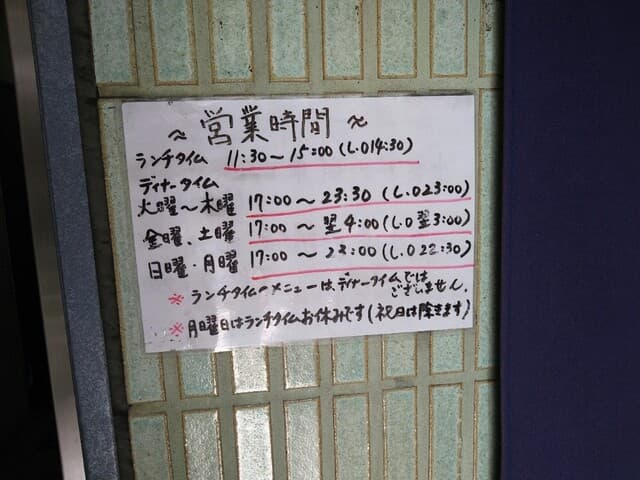 ~ 営業時間 ~
ランチタイム 11:30～15:00(L.O14:30)
ディナータイム
火曜～木曜 17:00～23:30(L.O23:00)
金曜、土曜 17:00～翌4:00(L.O翌3:00)
日曜・月曜 17:00～23:00(L.O22:30)
※ランチタイムのメニューは、ディナータイムでは
ございません。
※月曜日はランチタイムお休みです(祝日は除きます)